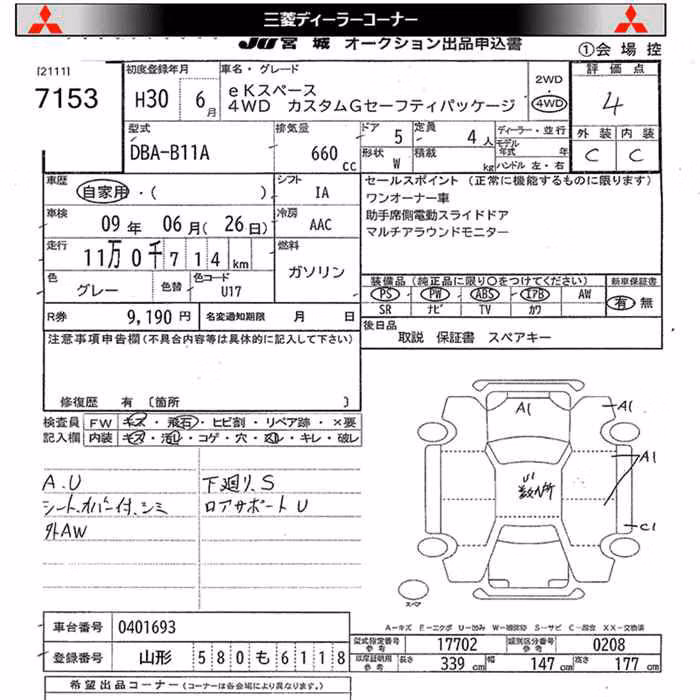 三菱ディーラーコーナー
JU宮城 オークション出品申込書
①会場控
[2111]
7153
初度登録年月
H30 6月
車名・グレード
eKスペース
4WD カスタムGセーフティパッケージ
2WD
4WD
評価点
4
外装 内装
C C
型式
DBA-B11A
排気量
660 cc
ドア 5
定員 4人
形状 W
積載 kg
ディーラー・並行
モデル年式 年
ハンドル 左・右
車歴 自家用・( )
シフト IA
車検 09年 06月(26日)
冷房 AAC
走行 11万0千714km
燃料 ガソリン
色 グレー
色替
色コード U17
R券 9,190円
名変通知期限 月 日
セールスポイント (正常に機能するものに限ります)
ワンオーナー車
助手席側電動スライドドア
マルチアラウンドモニター
装備品(純正品に限り○をつけてください)
PS PW ABS エアB AW
SR ナビ TV カワ
新車保証書
有 無
後日品
取説 保証書 スペアキー
注意事項申告欄(不具合内容等は具体的に記入して下さい)
修復歴 有 〔箇所 〕
検査員記入欄
FW キズ・飛石・ヒビ割・リペア跡・×要
内装 キズ・汚レ・コゲ・穴・スレ・キレ・破レ
A.U
シート、オバー付、シミ
外AW
下廻リ、S
ロアサポート U
A1
A1
A1
U1
数ヶ所
C1
スペア
A－キズ E－エクボ U－凹み W－補修跡 S－サビ C－腐食 XX－交換済
車台番号 0401693
登録番号 山形 580 も 6118
型式指定番号 参考 17702
類別区分番号 参考 0208
車庫証明用 参考 長さ 339cm 幅 147cm 高さ 177cm
希望出品コーナー(コーナーは各会場により異なります。)